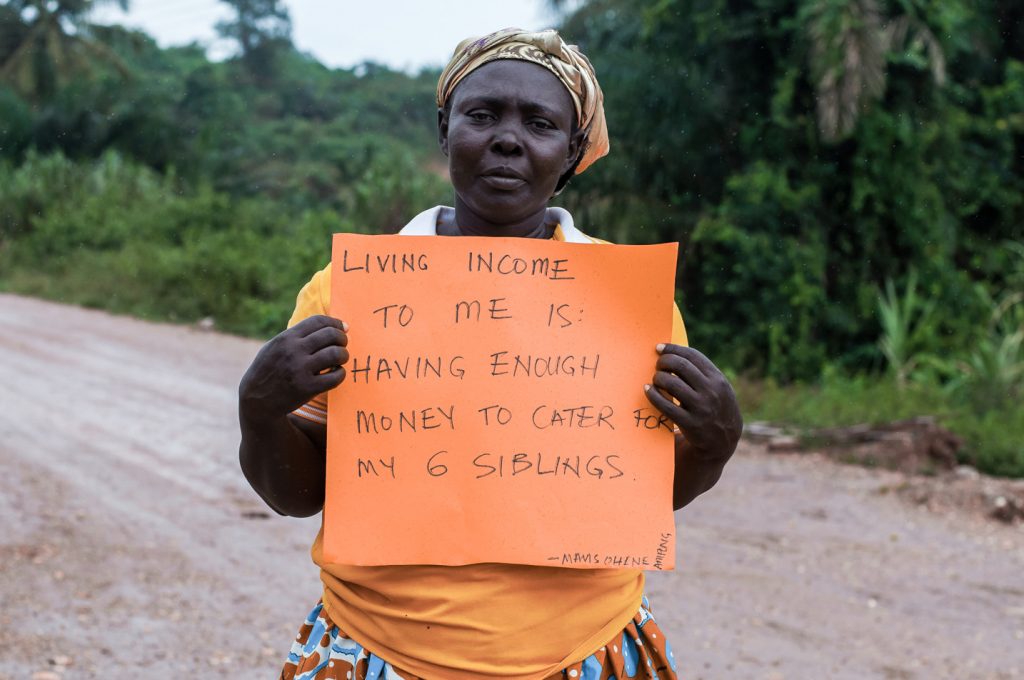 LIVING INCOME
TO ME IS:
HAVING ENOUGH
MONEY TO CATER FOR
MY 6 SIBLINGS.
-MAVIS OHENE